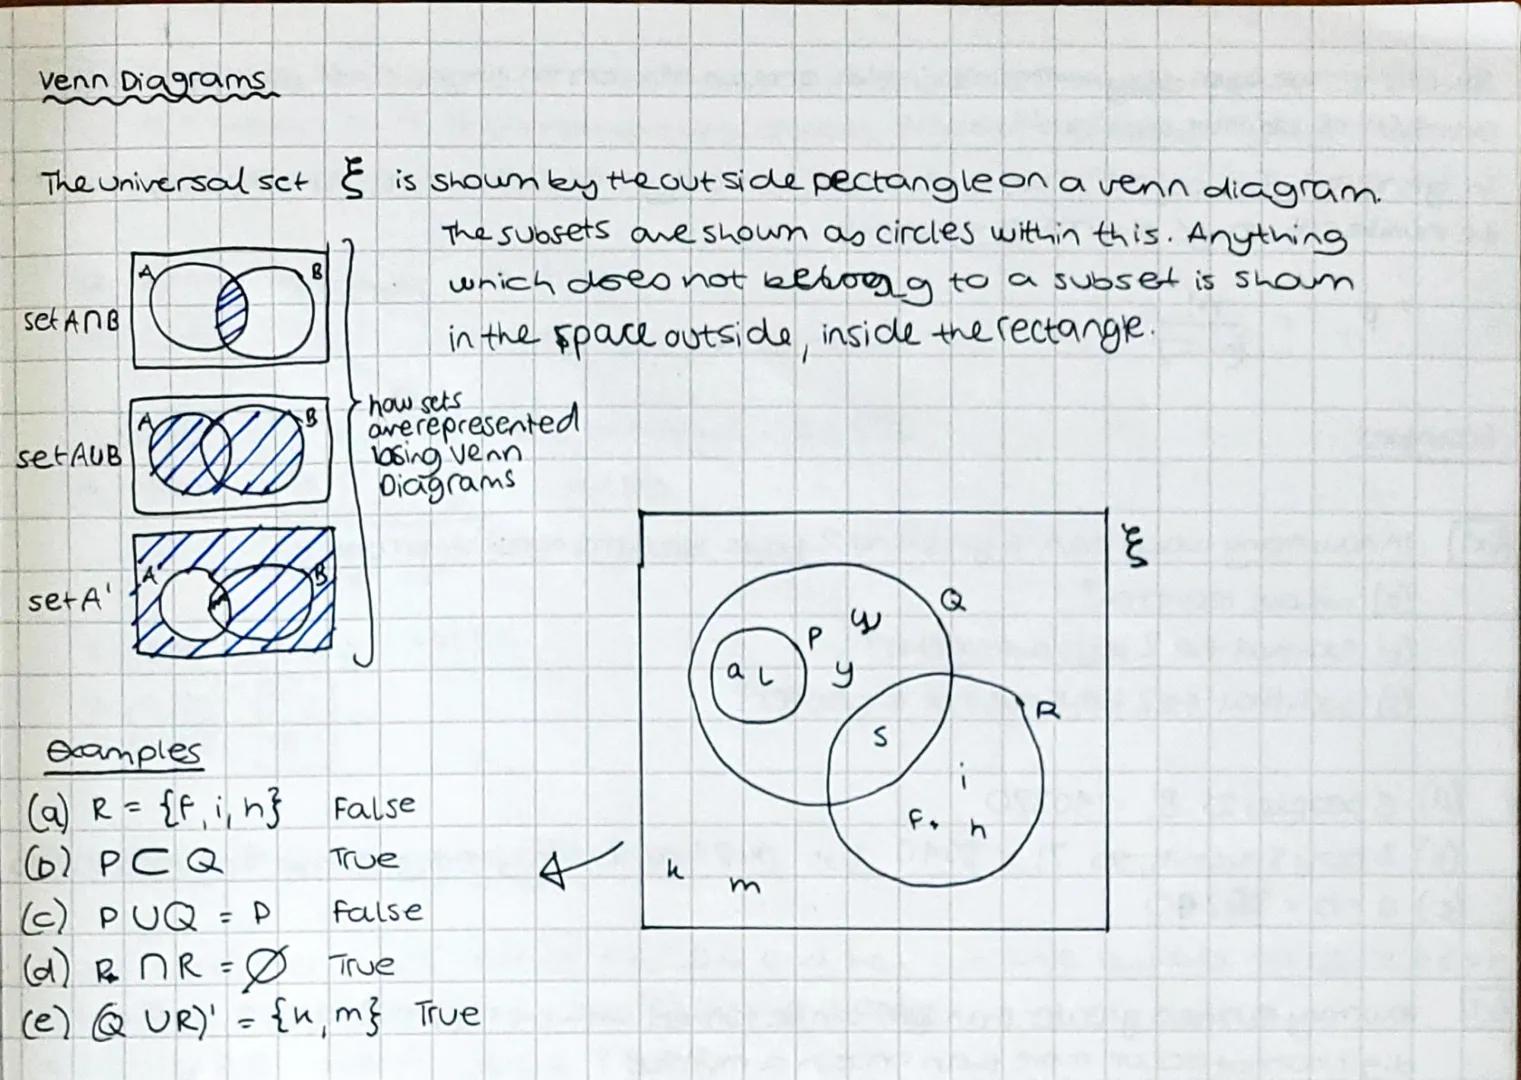 Venn Diagrams
The universal set ξ is shown by the outside pectangle on a venn diagram.
The subsets are shown as circles within this. Anything
which does not belong to a subset is shown
in the space outside, inside the rectangle.
set A∩B
A B
set A∪B
A B
set A'
A B
how sets
are represented
using venn
Diagrams
ξ
Q
P
y
a L
y
R
S
i
f. h
k
m
examples
(a) R = {f, i, h} False
(b) P ⊂ Q True
(c) P ∪ Q = P False
(d) P ∩ R = ∅ True
(e) (Q ∪ R)' = {k, m} True